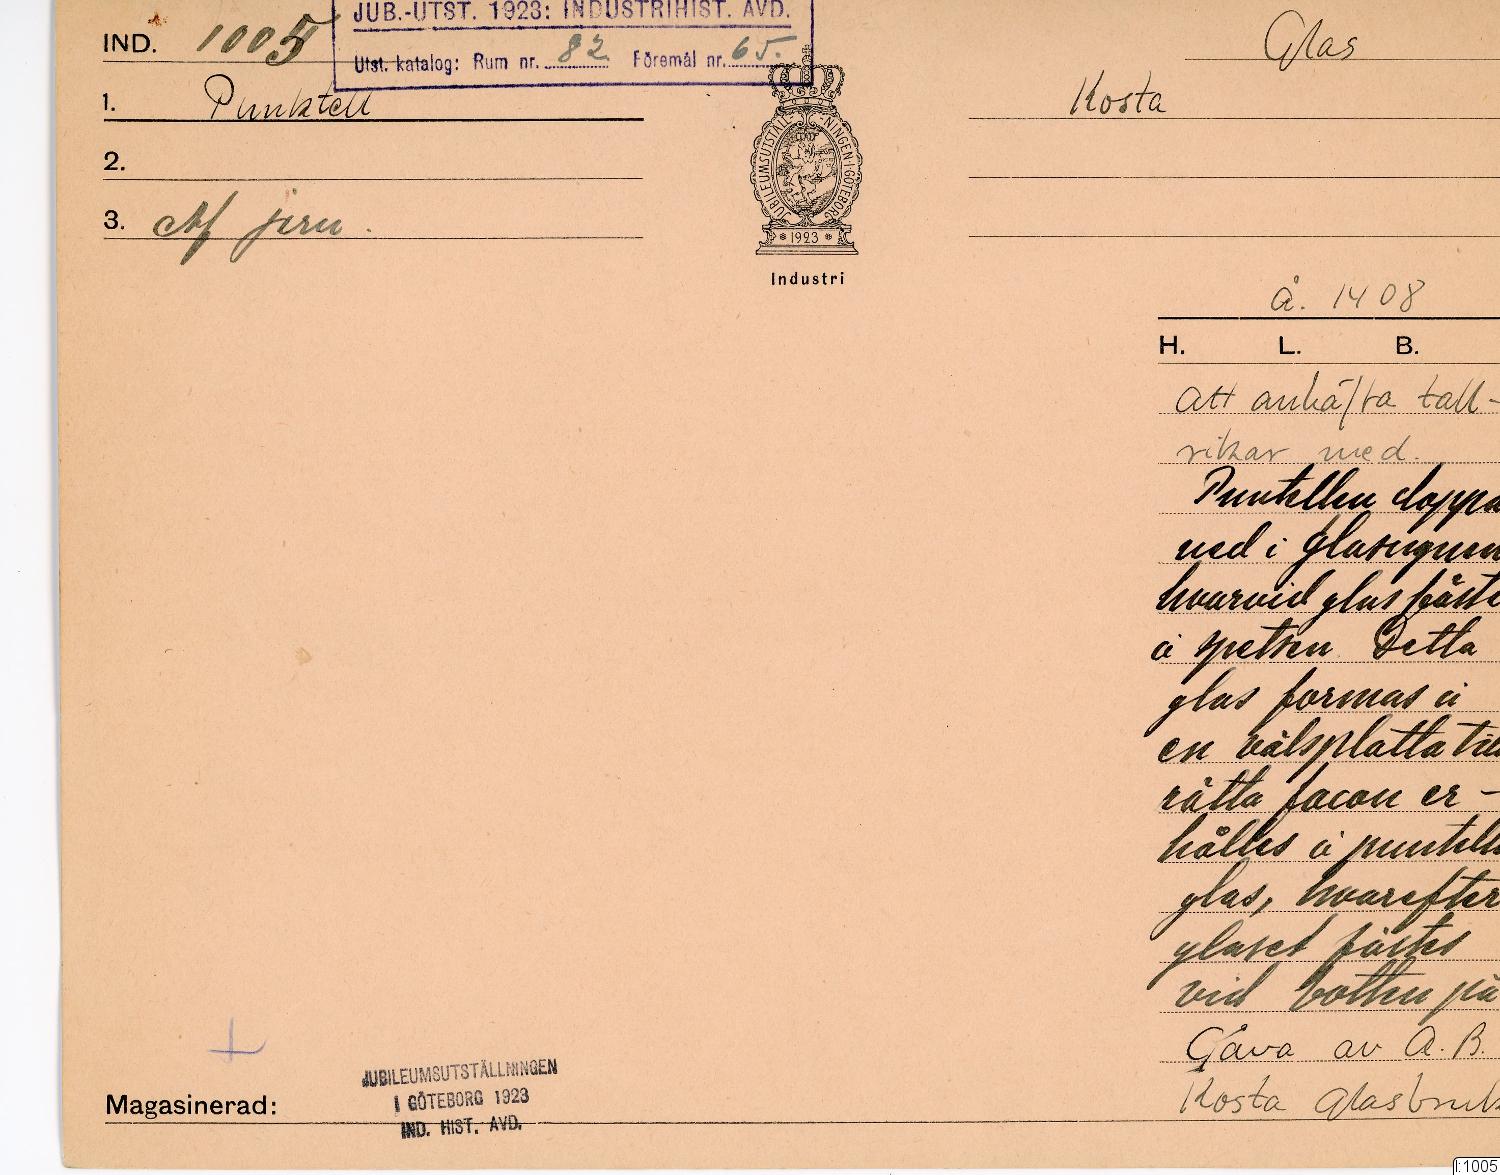 JUB.-UTST. 1923: INDUSTRIHIST. AVD.
Utst. katalog: Rum nr. 82 Föremål nr. 65.
IND. 1005
1. Punktell
2.
3. Af jern.
JUBILEUMSUTSTÄLLNINGEN I GÖTEBORG
* 1923 *
Industri
Glas
Kosta
å. 1408
H. L. B.
att anhäfta tall-
rikar med.
Puntellen doppa
ned i glasugnen
hvarvid glas fäste
å spetsen Detta
glas formas å
en välsplatta till
rätta facon er-
hålles å puntelle
glas, hvarefter
glaset fästes
vid botten på
Gåva av A.B.
Kosta Glasbruk
Magasinerad:
JUBILEUMSUTSTÄLLNINGEN
I GÖTEBORG 1923
IND. HIST. AVD.
I:1005